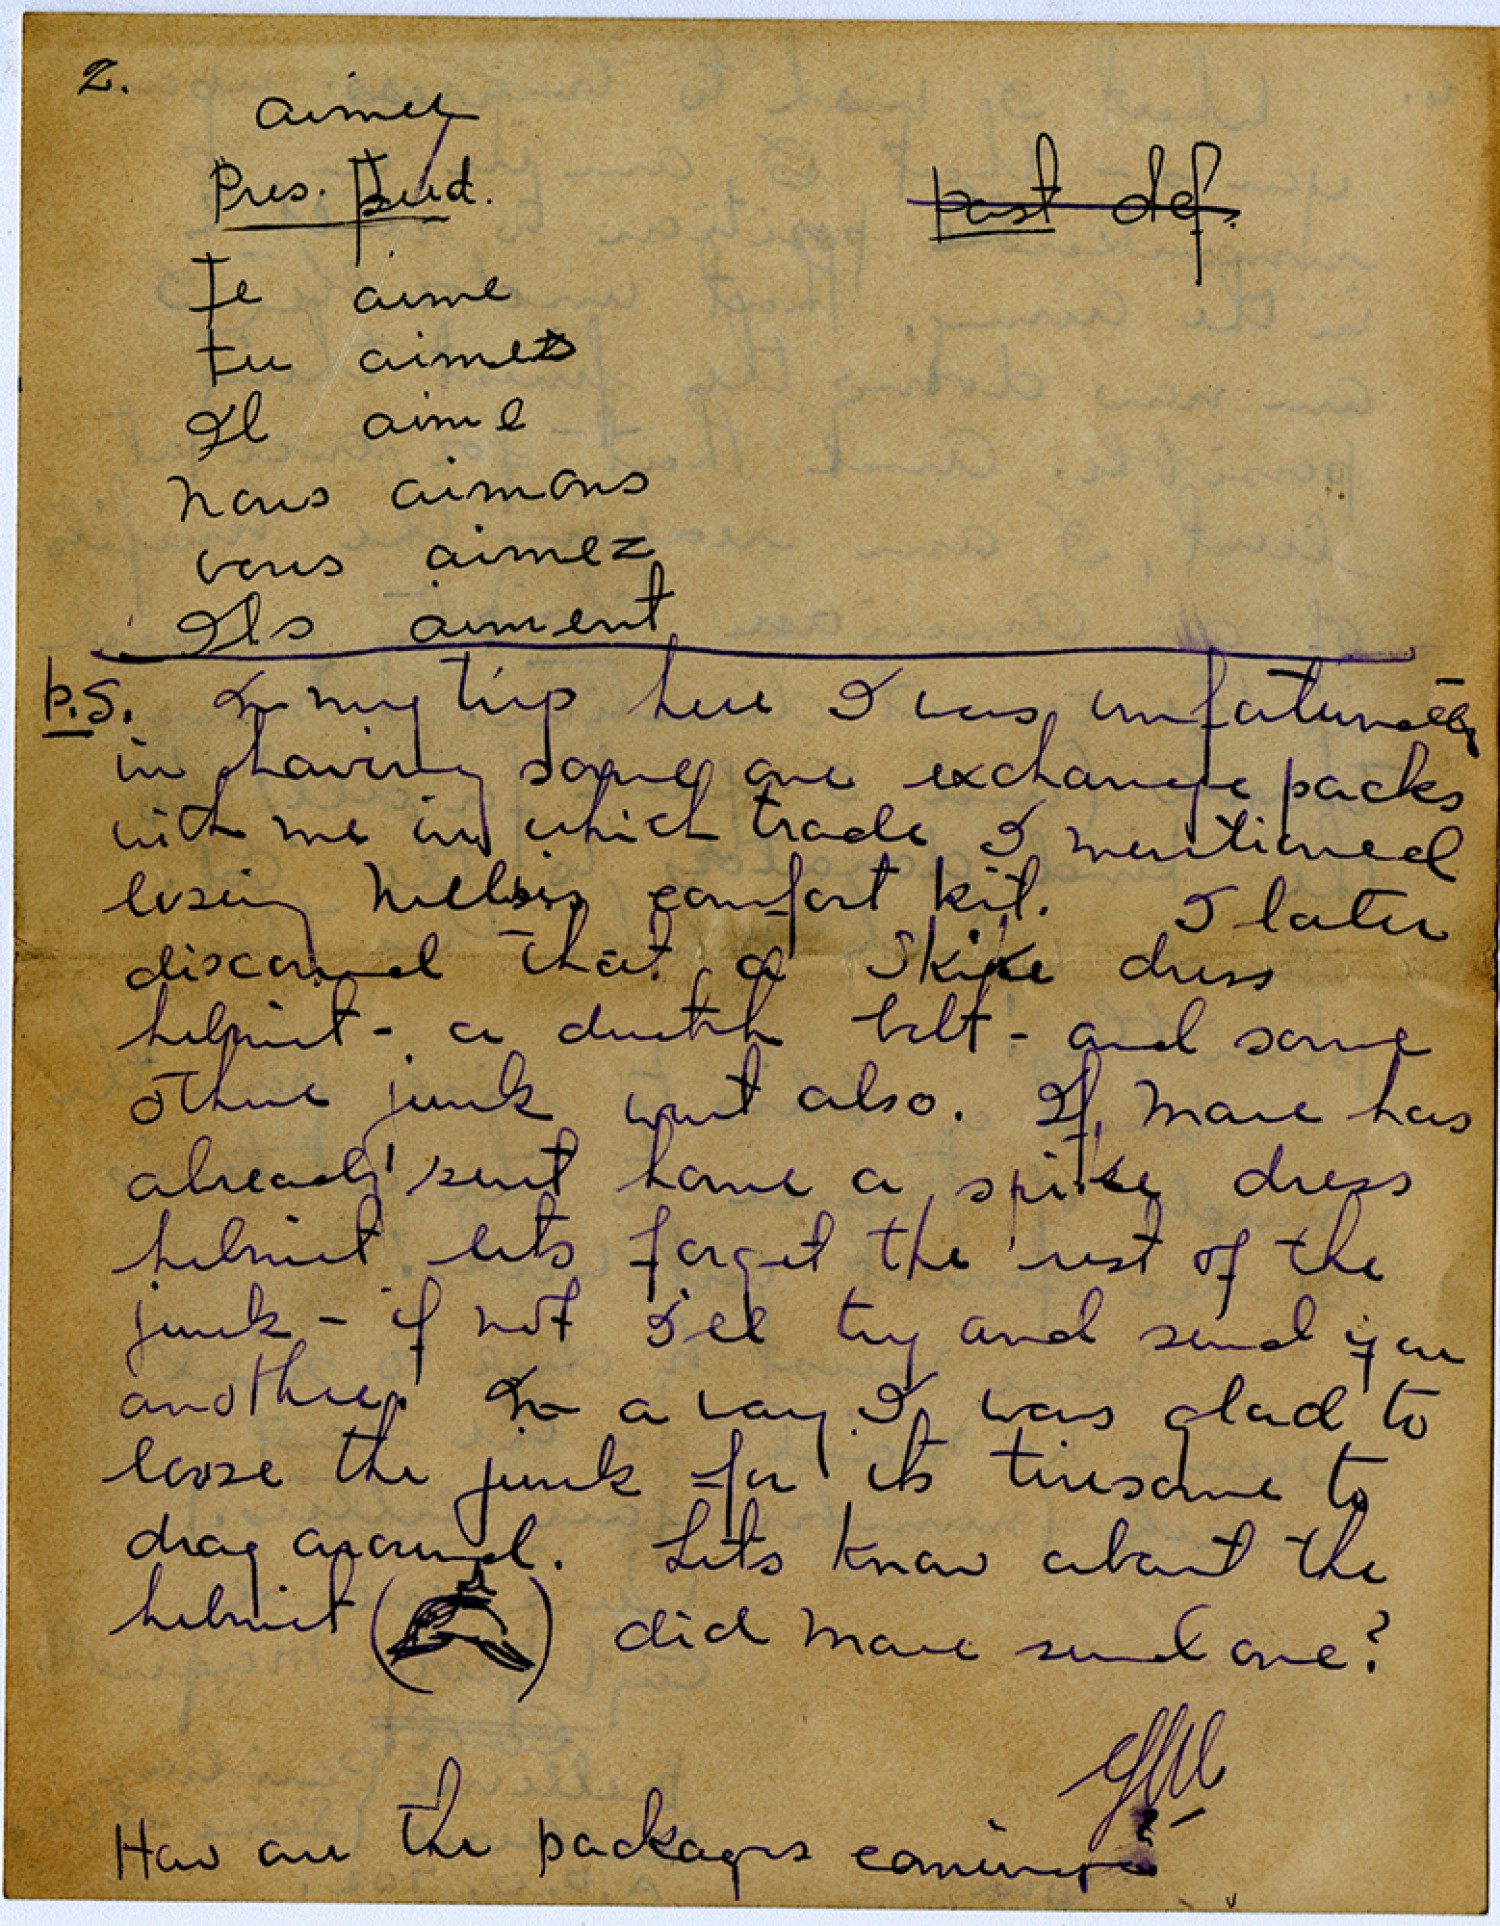 2.
aimer
Pres. Ind.
past def.
Je aime
tu aimes
Il aime
nous aimons
vous aimez
Ils aiment
p.s. In my trip here I was unfortunate
in having some one exchange packs
with me in which trade I mentioned
losing comfort kit. I later
discovered that a spike dress
helmet - a dutch belt - and some
other junk went also. If Mare has
already sent home a spike dress
helmet lets forget the rest of the
junk - if not I'll try and send you
another. In a way I was glad to
loose the junk for its tiresome to
drag around. Lets know about the
helmet ( ) did Mare send one?
How are the packages coming?